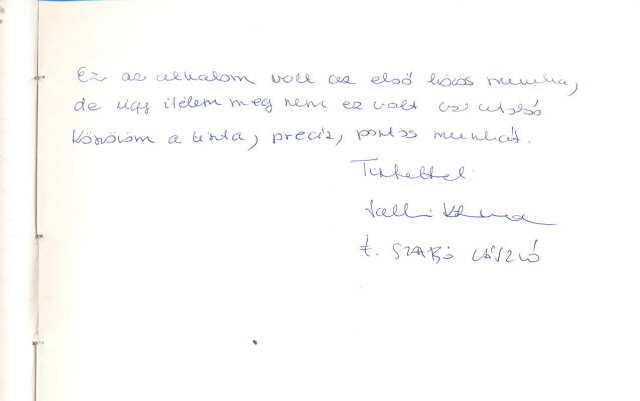 Ez az alkalom volt az első közös munka,
de úgy ítélem meg nem ez volt az utolsó
Köszönöm a tiszta, precíz, pontos munkát.
Tisztelettel:
SZABÓ LÁSZLÓ